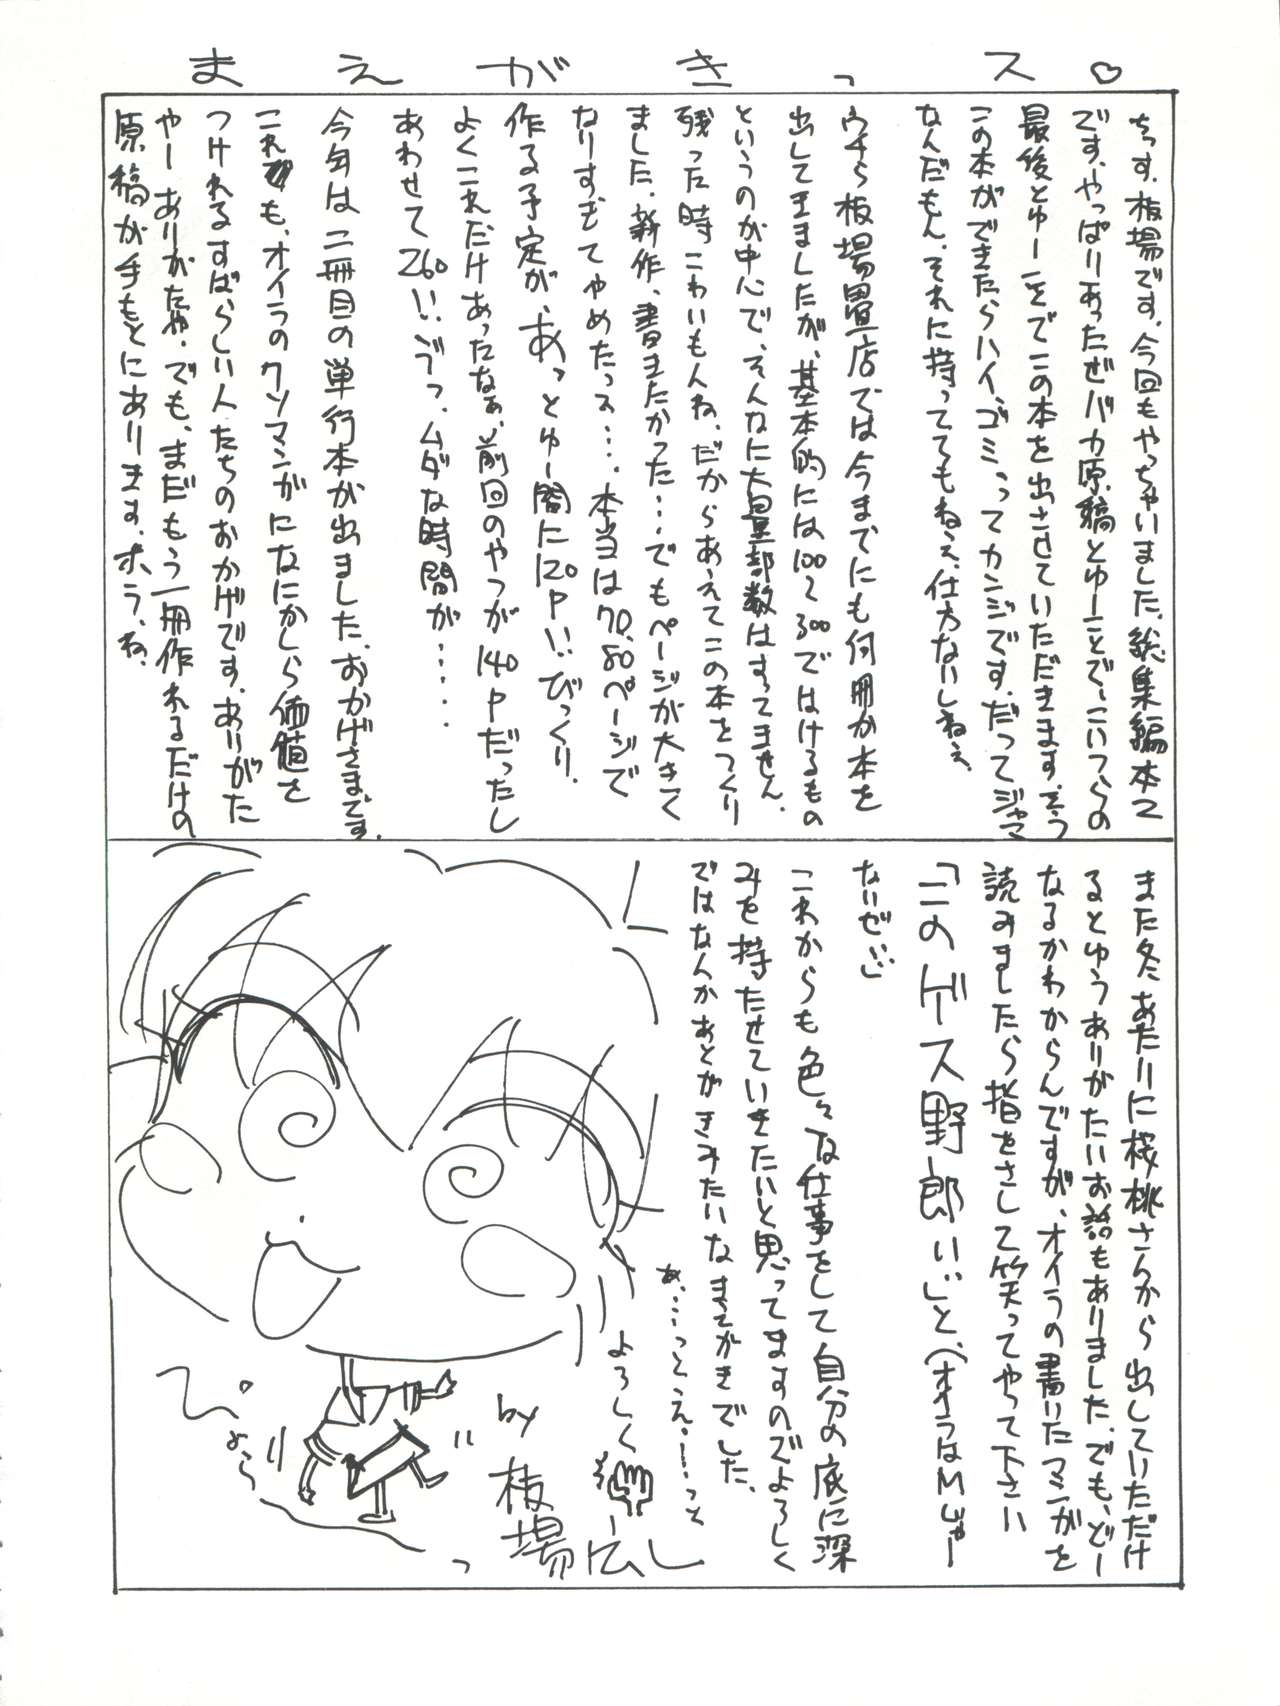 まえがきっス♡
ちっす。板場です。今回もやっちゃいました。総集編本2
です。やっぱりあったぜバカ原稿とゆーことで、こいつらの
最後とゆーことでこの本を出させていただきます。そう
この本ができたらハイ、ゴミってカンジです。だってジャマ
なんだもん。それに持っててもねえ、仕方ないしねえ。
ウチら板場畳店では今までにも何冊か本を
出してきましたが、基本的には100〜300ではけるもの
というのが中心で、そんなに大量部数はすってません。
残った時こわいもんね。だからあえてこの本をつくり
ました。新作、書きたかった…。でもページが大きく
なりすぎてやめたっス…。本当は70、80ページで
作る予定が、あっとゆー間に120P!!びっくり。
よくこれだけあったなぁ。前回のやつが140Pだったし
あわせて260!!ゔっ、ムダな時間が……
今年は二冊目の単行本が出ました。おかげさまです。
これでも、オイラのクソマンガになにかしら価値を
つけれるすばらしい人たちのおかげです。ありがた
やーありがたや。でも、まだもう一冊作れるだけの
原稿が手もとにあります。ホラ、ね。
また冬あたりに桜桃さんから出していただけ
るとゆうありがたいお話もありました。でも、どー
なるかわからんですが、オイラの書いたマンガを
読みましたら指をさして笑ってやって下さい
「このゲス野郎い!」と、(オイラはMじゃー
ないぜい!!)
これからも色々な仕事をして自分の底に深
みを持たせていきたいと思ってますのでよろしく
ではなんかあとがきみたいなまえがきでした。
あ…っとえ…っと
よろしく
by
板場広し
ぴょろっ